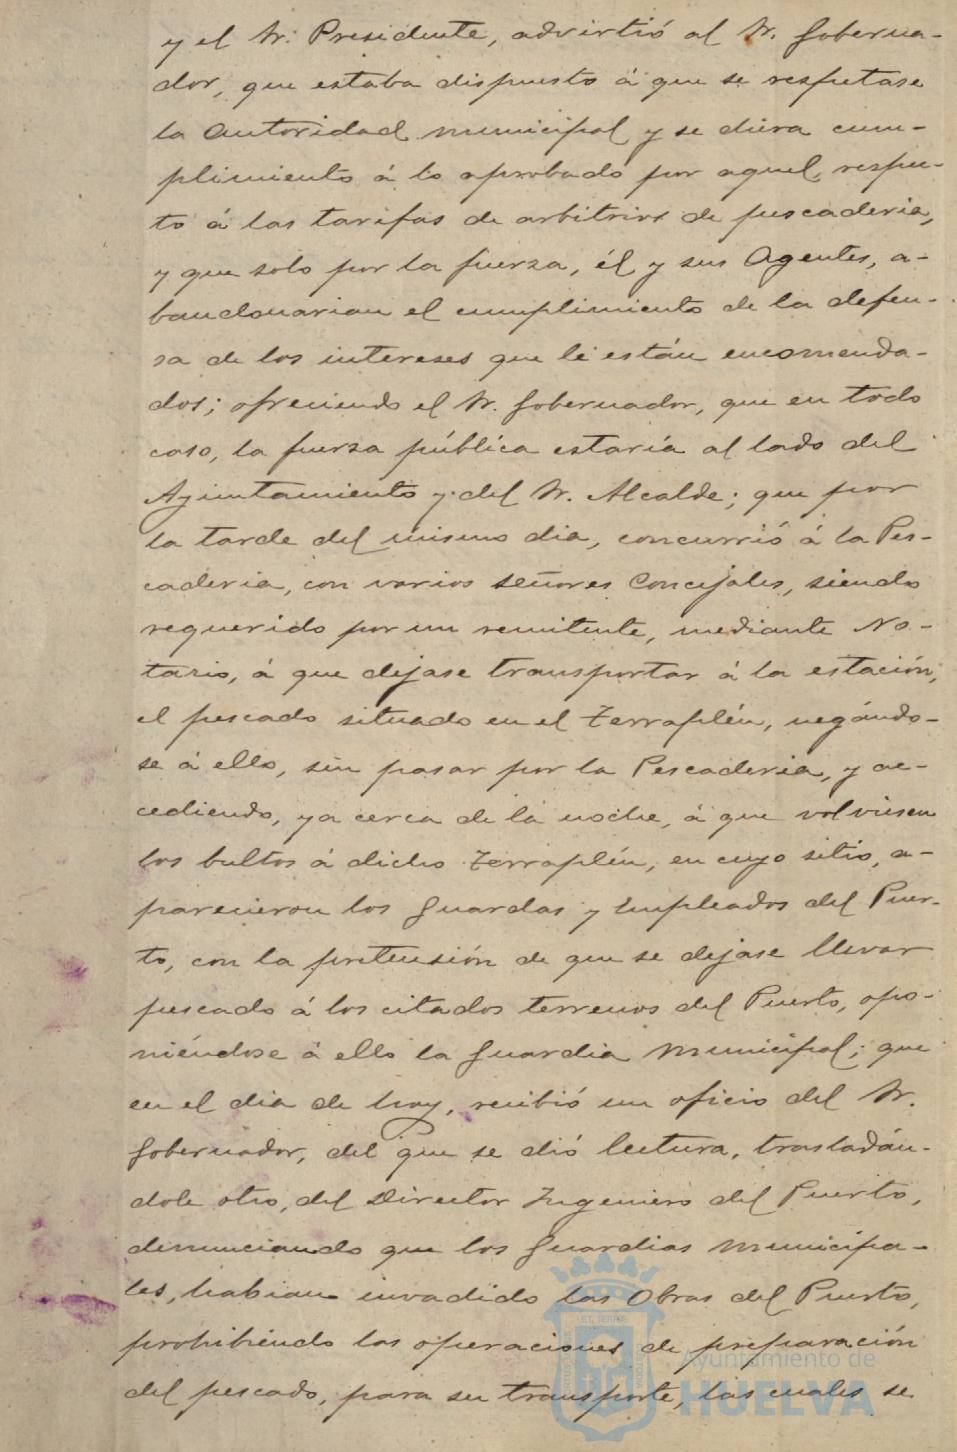 y el Sr. Presidente, advirtió al Sr. Goberna-
dor, que estaba dispuesto á que se respetase
la Autoridad municipal y se diera cum-
plimiento á lo aprobado por aquel, respec-
to á las tarifas de arbitrios de pescaderia,
y que solo por la fuerza, él y sus Agentes, a-
bandonarian el cumplimiento de la defen-
sa de los intereses que le están encomenda-
dos; ofreciendo el Sr. Gobernador, que en todo
caso, la fuerza pública estaría al lado del
Ayuntamiento y del Sr. Alcalde; que por
la tarde del mismo dia, concurrió á la Pes-
caderia, con varios señores Concejales, siendo
requerido por un remitente, mediante No-
tario, á que dejase transportar á la estación,
el pescado situado en el Terraplén, negándo-
se á ello, sin pasar por la Pescaderia, y ac-
cediendo, ya cerca de la noche, á que volviesen
los bultos á dicho Terraplén, en cuyo sitio, a-
parecieron los Guardas y Empleados del Puer-
to, con la pretensión de que se dejase llevar
pescado á los citados terrenos del Puerto, opo-
niéndose á ello la Guardia Municipal; que
en el dia de hoy, recibió un oficio del Sr.
Gobernador, del que se dió lectura, trasladán-
dole otro, del Director Ingeniero del Puerto,
denunciando que los Guardias Municipa-
les, habian invadido las Obras del Puerto,
prohibiendo las operaciones de preparación
del pescado, para su transporte, las cuales se
Ayuntamiento de
HUELVA